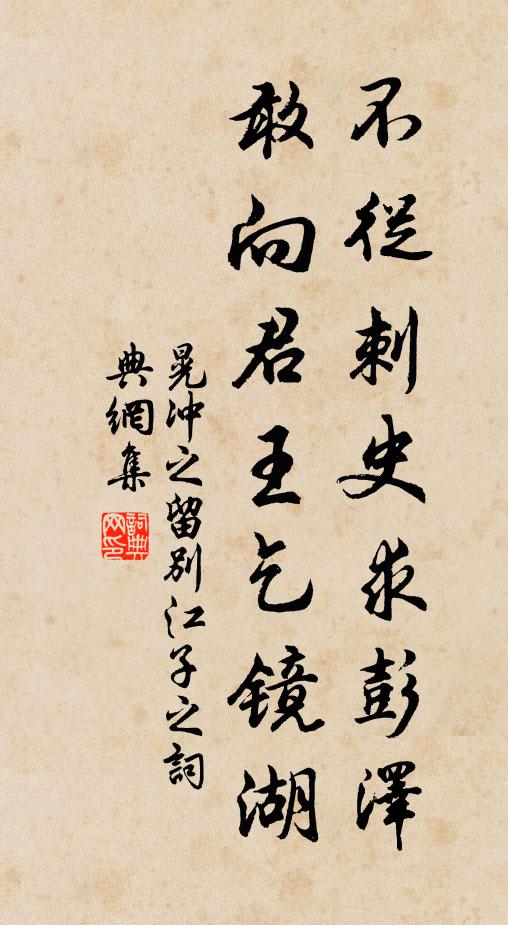 不從刺史求彭澤
敢向君王乞镜湖
晁冲之留别江子之詞
典網集
詞典網印